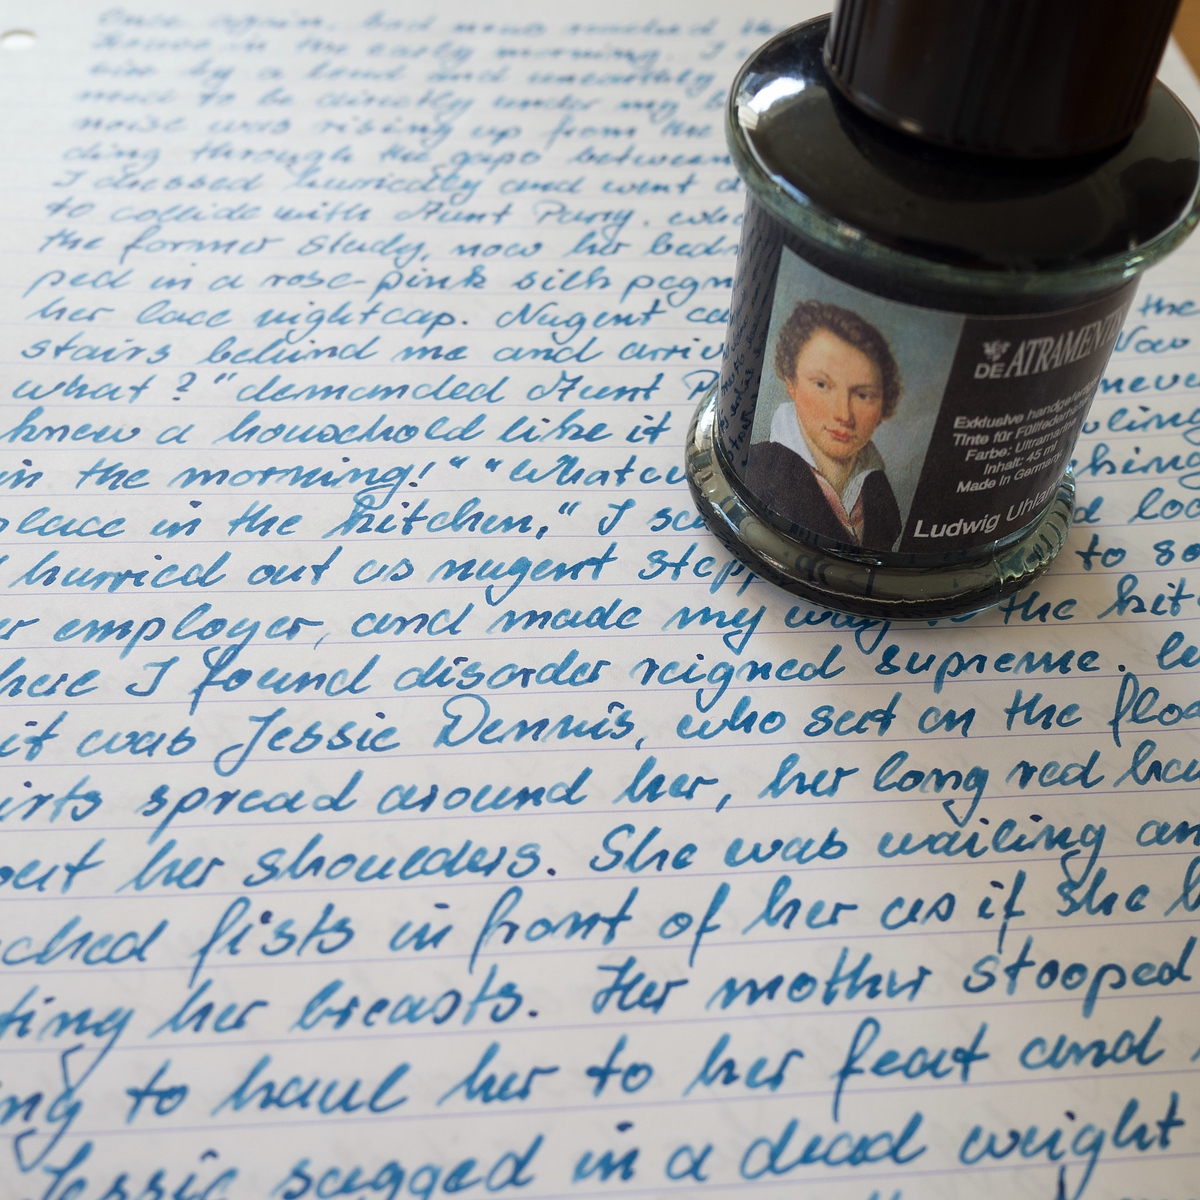 Once again, bad news reached the
house in the early morning. I
by a loud and unearthly
to be directly under my
noise was rising up from the
ding through the gaps between
I dressed hurriedly and went
to collide with Aunt Parry. who
the former study, now her bed
ped in a rose-pink silk
her lace nightcap. Nugent the
stairs behind me and arriv Now
what?" demanded Aunt P never
knew a household like it
in the morning!" "Whatev
place in the kitchen," I
hurried out as nugent stepp to
er employer, and made my way to the kit
here I found disorder reigned supreme.
it was Jessie Dennis, who sat on the floo
irts spread around her, her long red hair
out her shoulders. She was wailing an
ched fists in front of her as if she
ting her breasts. Her mother stooped
ng to haul her to her feat and
Jessie sagged in a dead weight
DE ATRAMENTIS
Exklusive handgefertigte
Tinte für Füllfederhalter
Farbe: Ultramarin
Inhalt: 45 ml
Made in Germany
Ludwig Uhland